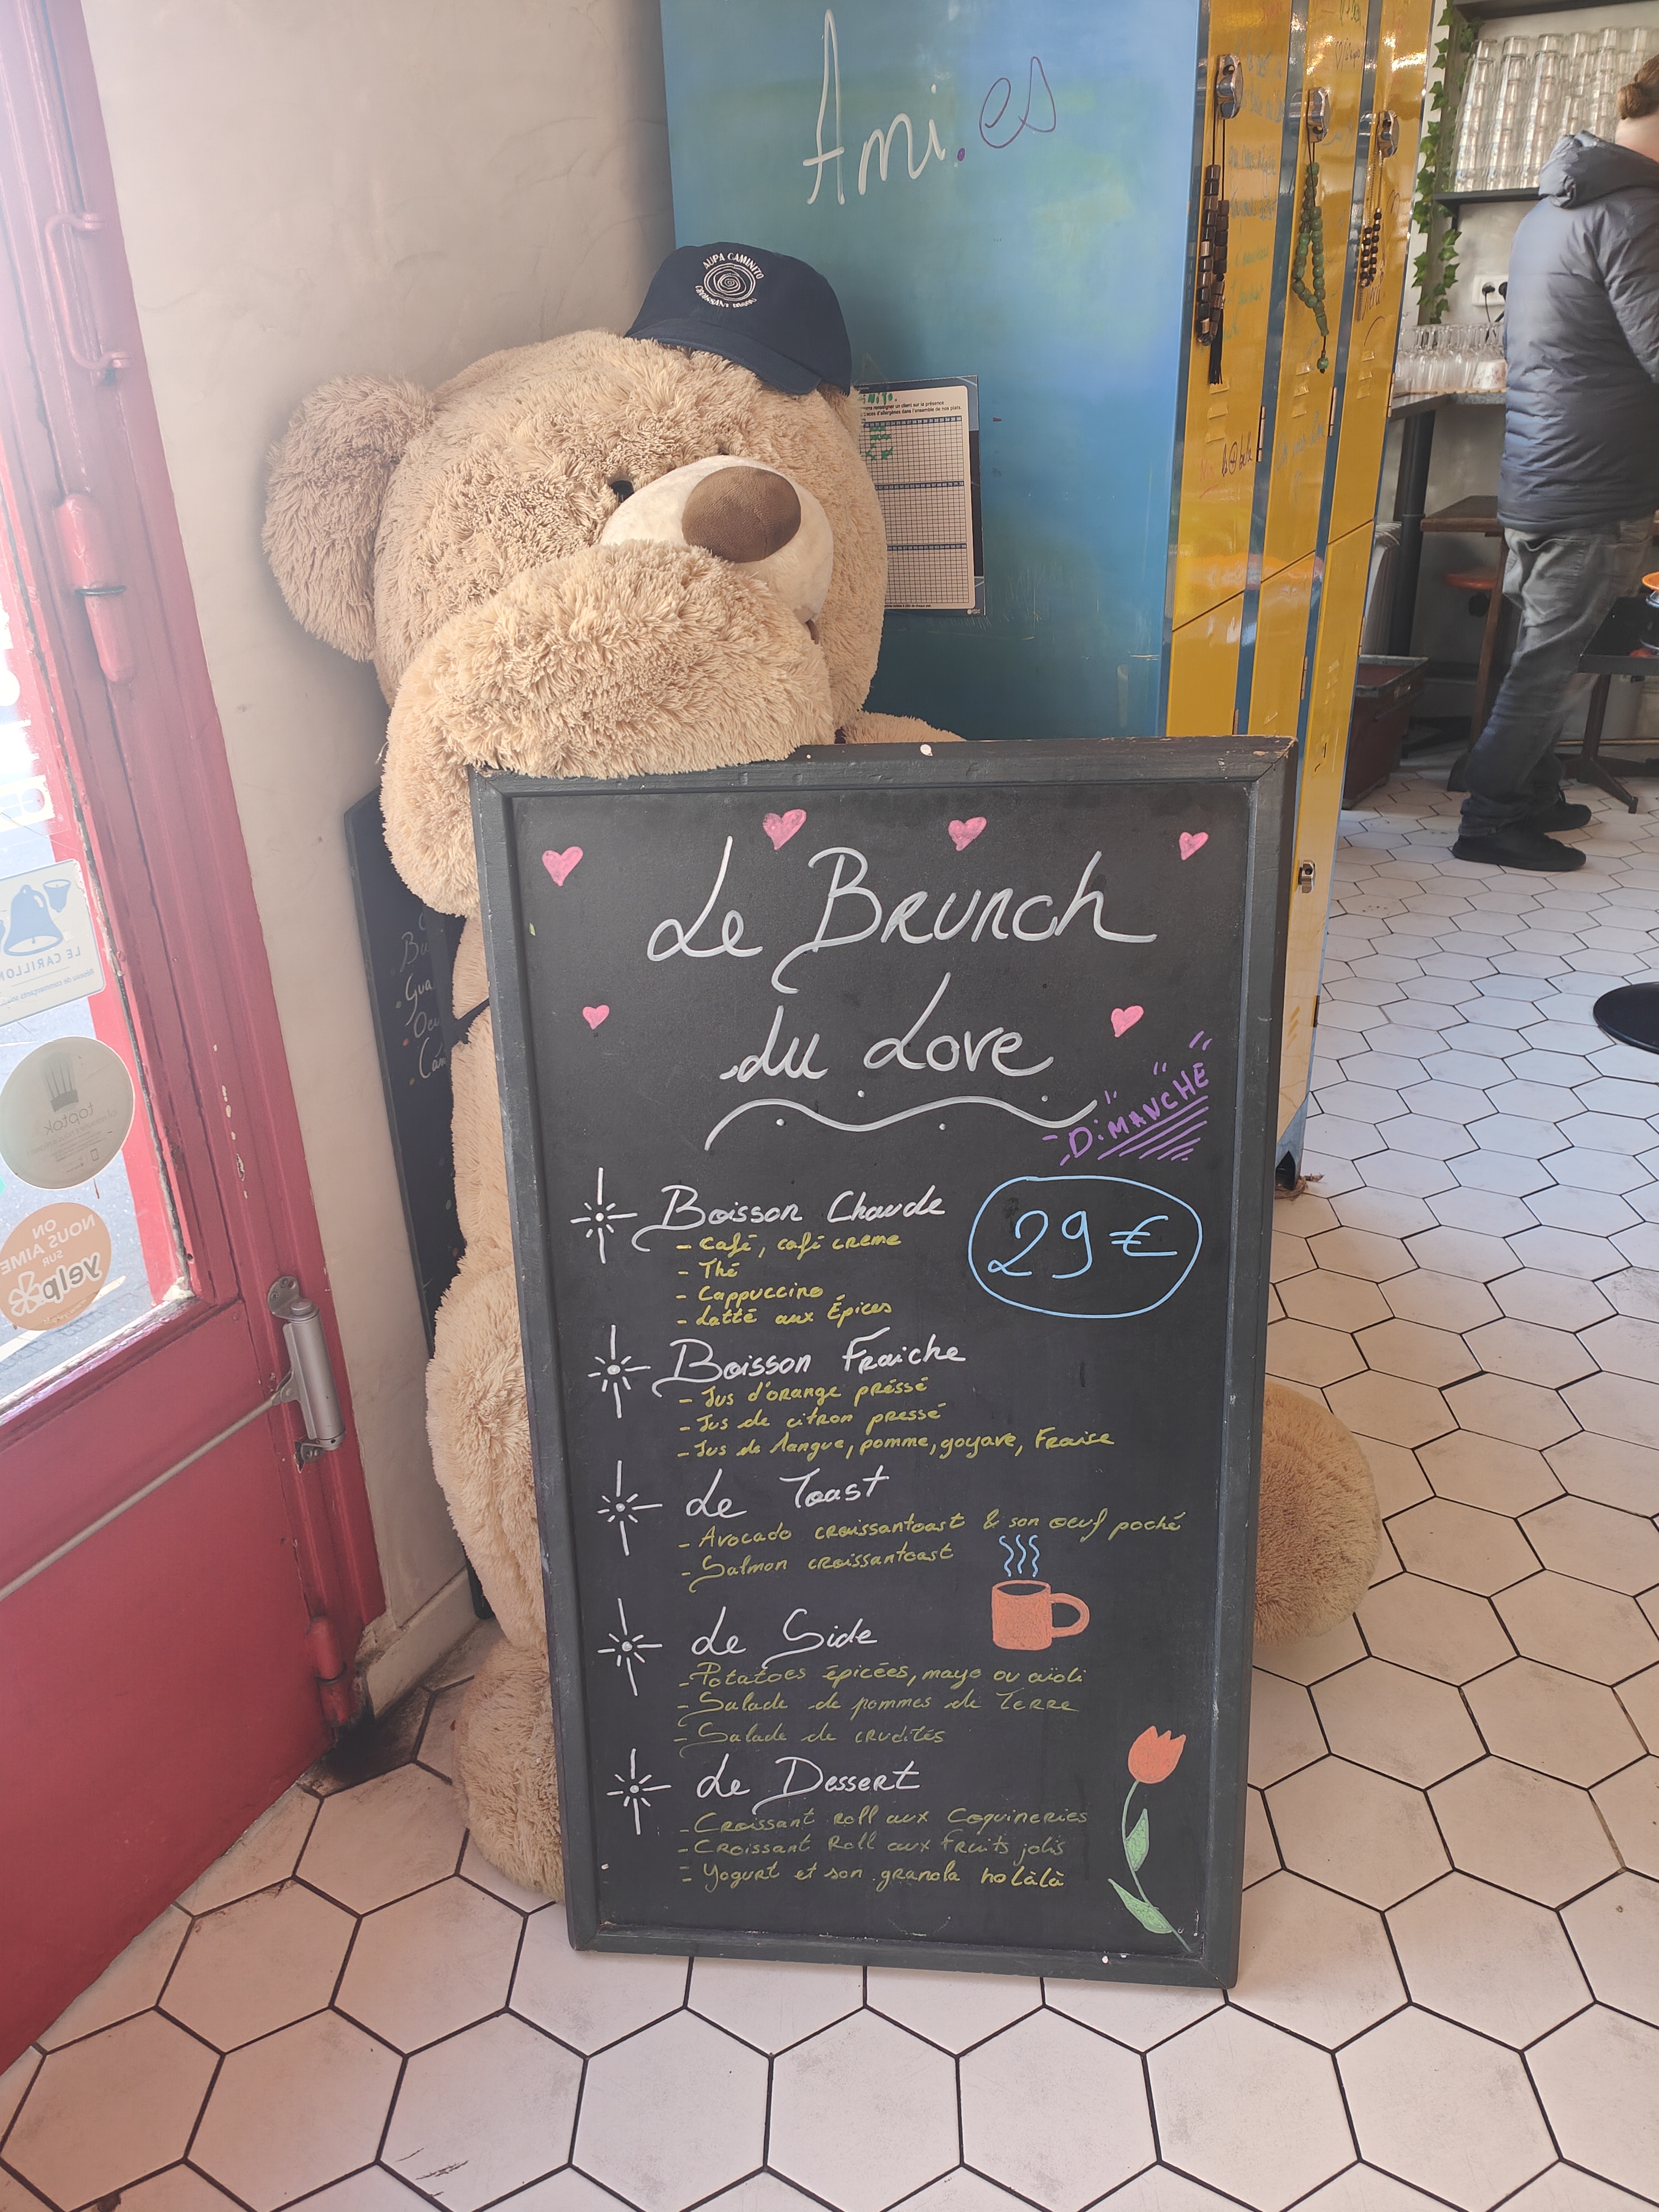 Ami.es
AUPA CAMINITO
présence
d'allergènes dans l'ensemble de nos plats.
Le Brunch
du Love
DiMANCHE
29 €
Boisson Chaude
- Café, café creme
- Thé
- Cappuccino
- Latté aux Épices
Boisson Fraiche
- Jus d'orange préssé
- Jus de citron pressé
- Jus de Mangue, pomme, goyave, Fraise
Le Toast
- Avocado croissantoast & son oeuf poché
- Salmon croissantoast
Le Side
- Potatoes épicées, mayo ou aïoli
- Salade de pommes de Terre
- Salade de crudités
Le Dessert
- Croissant roll aux Coquineries
- Croissant Roll aux Fruits jolis
- Yogurt et son granola holàlà
LE CARILLON
toptok
ON
NOUS AIME
SUR
yelp